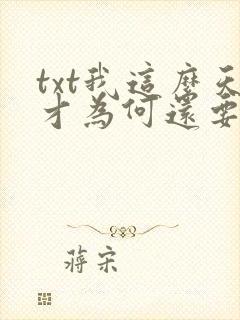 txt我這麼天
才為何還要
蔣宋